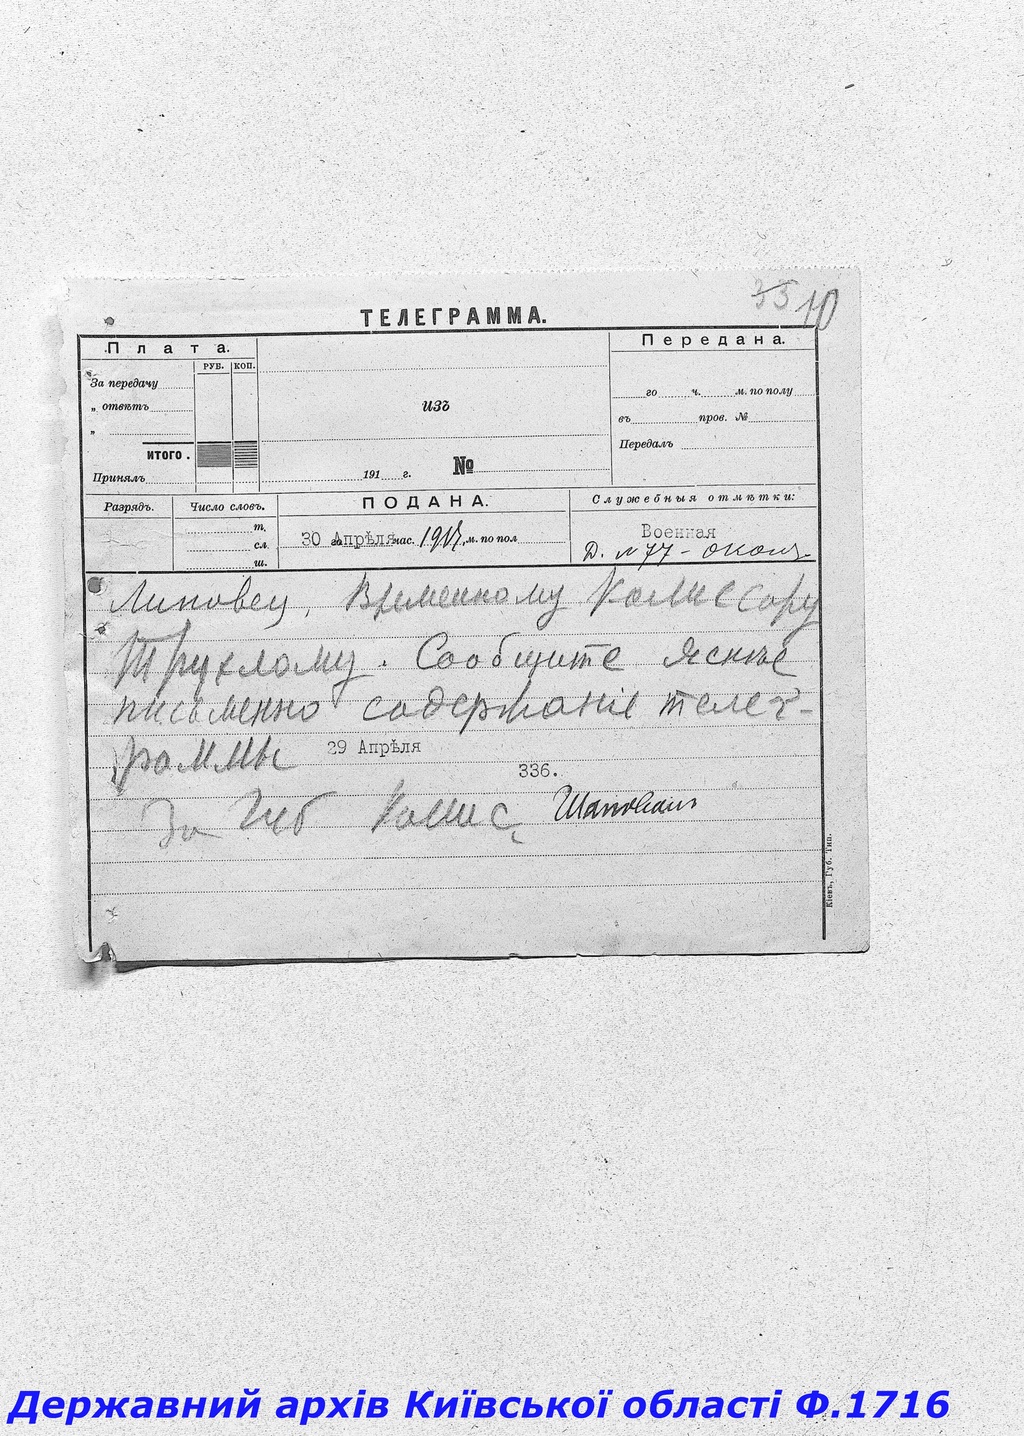 35 10
ТЕЛЕГРАММА.
Плата.
РУБ. КОП.
За передачу
„ отвѣтъ
„
ИТОГО.
Принялъ
изъ
191 г. №
Передана.
го ч. м. по полу
въ пров. №
Передалъ
Разрядъ.
Число словъ.
т.
сл.
ш.
ПОДАНА.
30 Апрѣля час. 1917, м. по пол
Служебныя отмѣтки:
Военная
Д. № 77 -
Липовец, Временному Комиссару
Трухлому. Сообщите яснѣе
письменно содержаніе телег-
раммы 29 Апрѣля
336.
За Губ Комис,
Кіевъ, Губ. Тип.
Державний архів Київської області Ф.1716